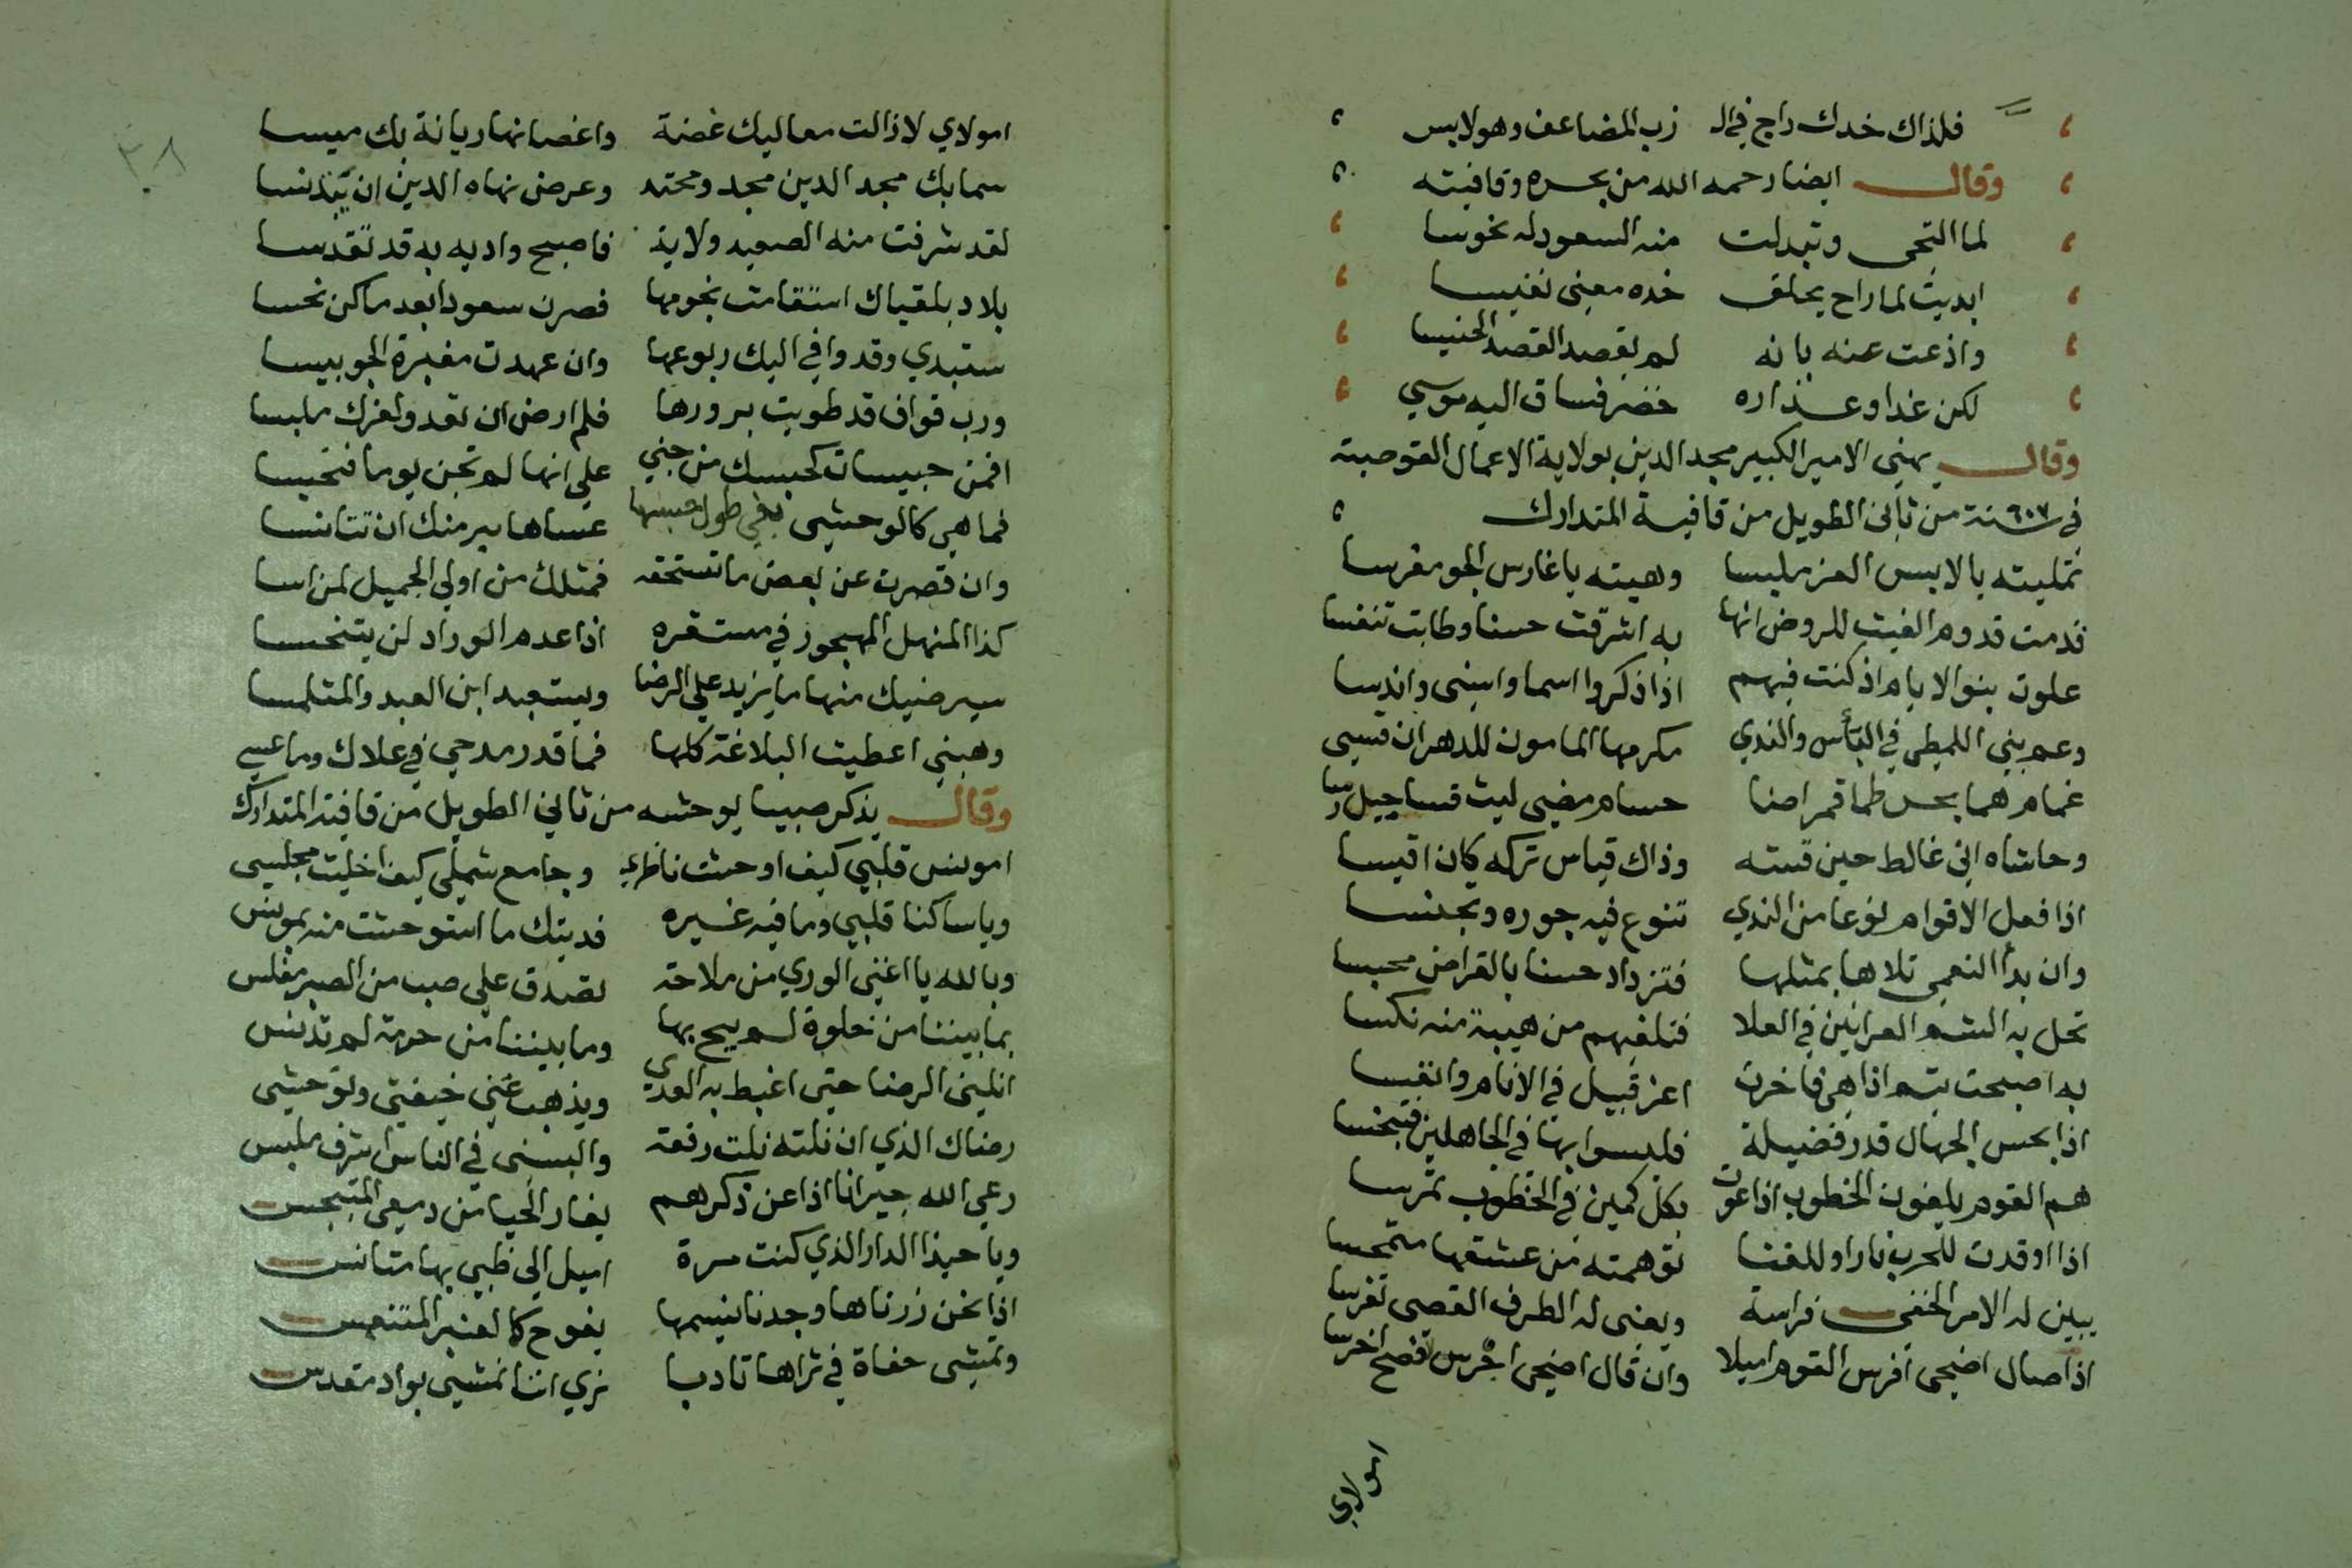 فلذاك خدك راح في الـ زرب المضاعف وهو لابس
وقال ايضا رحمه الله من بحره وقافيته
لما التحى وتبدلت منه السعود له نحوسا
ابديت لما راح يحلق خده معنى نفيسا
واذعت عنه بانه لم يقصد القصد الخسيسا
لكن غدا وعذاره خضر فساق اليه موسي
وقال يهني الامير الكبير مجد الدين بولاية الاعمال القوصية
في سنة ٦٠٧ من ثاني الطويل من قافية المتدارك
تمليته يا لابس العز ملبسا وهنيته يا غارس الجود مغرسا
قدمت قدوم الغيث للروض انها به اشرقت حسنا وطابت تنفسا
علوت بنو الايام اذ كنت فيهم اذا ذكروا اسما واسنى واندسا
وعم بني اللمطي في البأس والندي مكرمها المامون للدهر ان قسى
غمام هما بحر طما قمر اضا حسام مضى ليث قسا جبل رسا
وحاشاه اني غالط حين قسته وذاك قياس تركه كان اقيسا
اذا فعل الاقوام نوعا من الندي تنوع فيه جوده وتجنسا
وان بدأ النعمى تلاها بمثلها فتزداد حسنا بالقراض محبسا
تحل به الشم العرانين في العلا فتلفيهم من هيبة منه نكسا
به اصبحت تيم اذا هي فاخرت اعز قبيل في الانام وانفسا
اذا بخس الجهال قدر فضيلة فليسوا بها في الجاهلين فتبخسا
هم القوم يلفون الخطوب اذا عرت بكل كمين في الخطوب تمرسا
اذا اوقدت للحرب نارا وللقنا توهمته من عشقها متمجسا
يبين له الامر الخفي فراسة ويعنى له الطرف القصي تفرسا
اذا صال اضحى افرس القوم اميلا وان قال اضحى افصح اخرسا
امولاي
٣٨
امولاي لا زالت معاليك غضة واغصانها ريانة بك ميسا
سما بك مجد الدين مجد ومحتد وعرض نهاه الدين ان يتدنسا
لقد شرفت منه الصعيد ولاية فاصبح واديه به قد تقدسا
بلاد بلقياك استقامت نجومها فصرن سعودا بعد ما كن نحسا
ستبدي وقد وافي اليك ربوعها وان عهدت مغبرة الجو يبسا
ورب قواف قد طويت برورها فلم ارض ان تغدو لغيرك ملبسا
افمن حبيسات كحبسك من جني علي انها لم تجن يوما فتحبسا
فما هي كالوحشى بقي طول حبسها عساها ببر منك ان تتانسا
وان قصرت عن بعض ما تستحقه فمثلك من اولي الجميل لمن اسا
كذا المنهل المهجور في مستقره اذا عدم الوراد لن يتنجسا
سيرضيك منها ما يزيد علي الرضا ويستعبد ابن العبد والمتلمسا
وهبني اعطيت البلاغة كلها فما قدر مدحي في علاك وما عسي
وقال يذكر حبيبا يوحشه من ثاني الطويل من قافية المتدارك
امونس قلبي كيف اوحشت ناظري وجامع شملي كيف اخليت مجلسي
ويا ساكنا قلبي وما فيه غيره فديتك ما استوحشت منه بمونس
وبالله يا اغني الوري من ملاحة تصدق علي صب من الصبر مفلس
بما بيننا من خلوة لم يبح بها وما بيننا من حرمة لم تدنس
انلني الرضا حتي اغيظ به العدي ويذهب عني خيفتي وتوحشي
رضاك الذي ان نلته نلت رفعة والبسنى في الناس اشرف ملبس
رعي الله جيرانا اذا عن ذكرهم يغار الحيا من دمعي المتبجس
ويا حبذا الدار الذي كنت مرة اميل الي ظبي بها متانس
اذا نحن زرناها وجدنا نسيمها يفوح كالعنبر المتنفس
ونمشى حفاة في ثراها تادبا نري اننا نمشي بواد مقدس